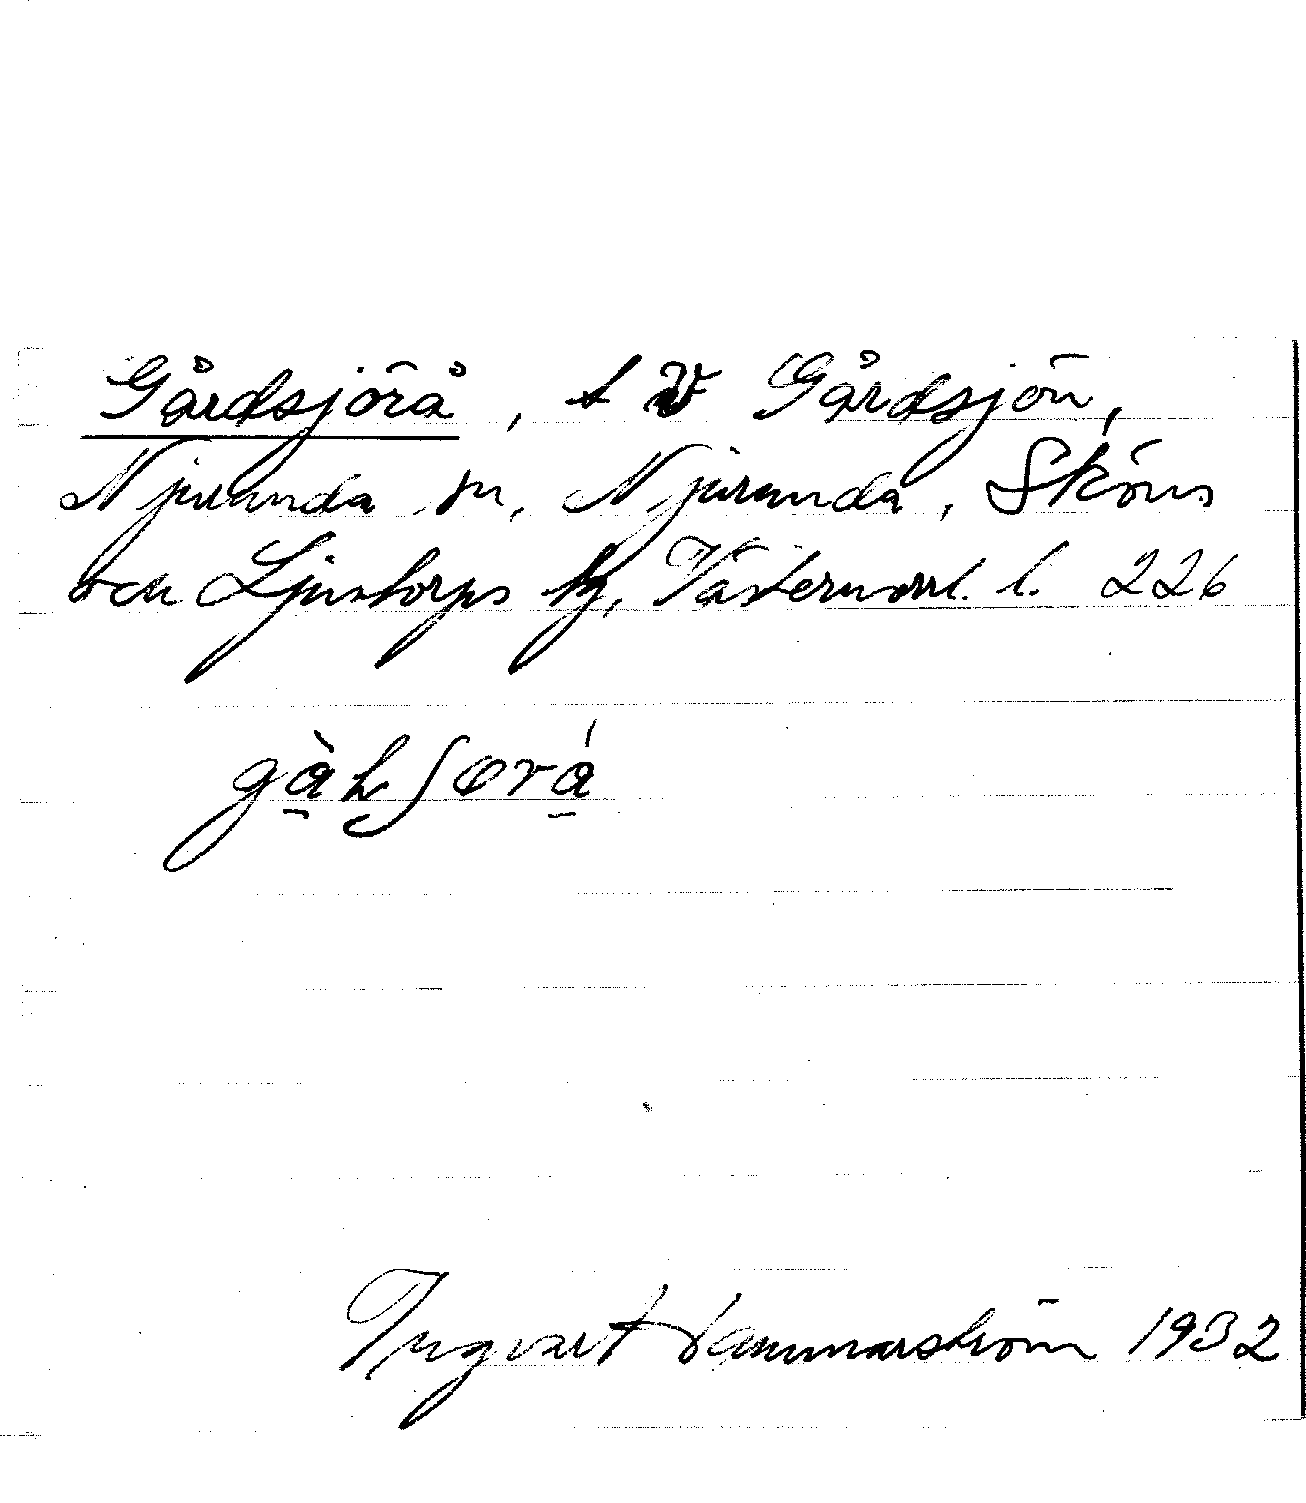 Gårdsjörå, t V Gårdsjön,
Njurunda sn, Njurunda, Sköns
och Ljustorps tg, Västernorrl. l. 226
Ingvart Hammarström 1932